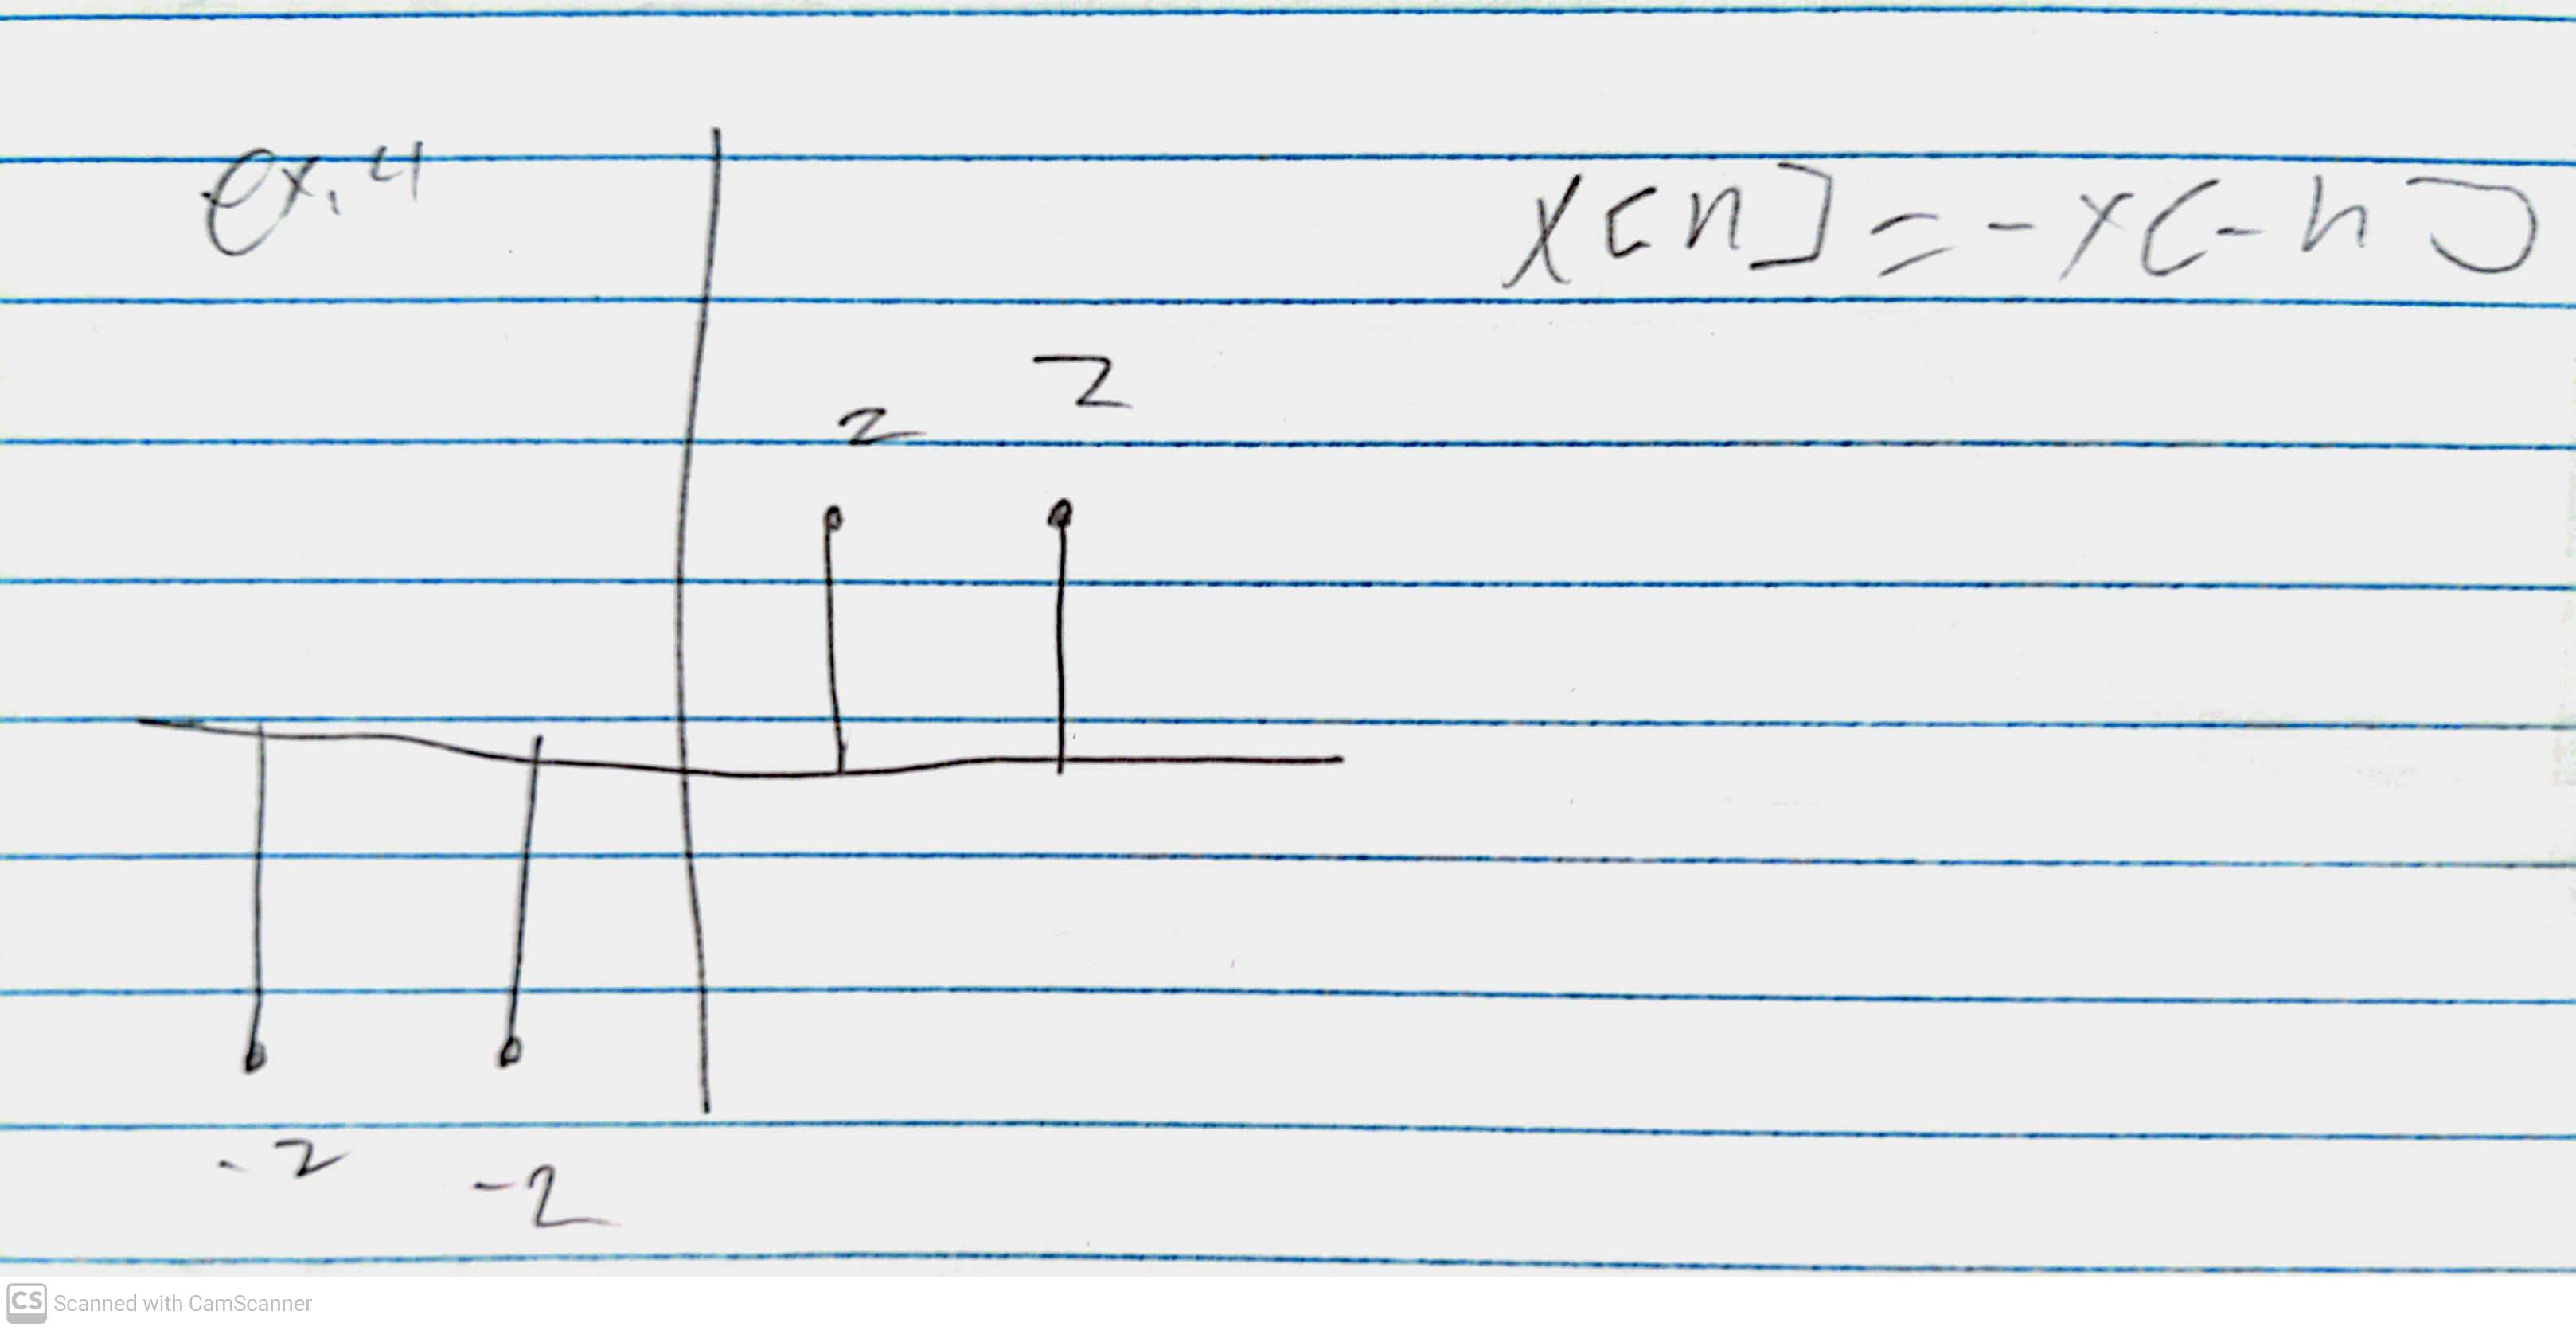 ex. 4
x[n] = -x(-n]
2
2
-2
-2
CS Scanned with CamScanner